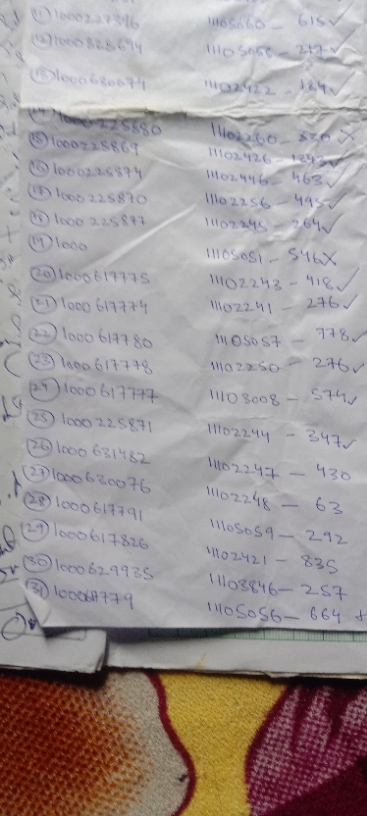 (11) 1000227396 11105660 - 615 ✓
(12) 1000828694 11105055 - 217 ✓
(13) 1000680074 11102422 - 184 ✓
1000225880 11102260 - 320 ✗
(15) 1000225869 11102426 - 1292 ✓
(16) 1000225874 11102446 - 463 ✓
1000225870 11102256 - 495 ✓
(18) 1000225877 11102245 - 264 ✓
(19) 1000 11105051 - 546 ✗
(20) 1000617775 11102243 - 418 ✓
(21) 1000617774 11102241 - 276 ✓
(22) 1000617780 11105057 - 778 ✓
(23) 1000617778 11102250 - 276 ✓
(24) 1000617777 11103008 - 574 ✓
(25) 1000225871 11102244 - 347 ✓
(26) 1000631482 11102247 - 430
(27) 1000630076 11102248 - 63
(28) 1000617791 11105059 - 292
(29) 1000617826 11102421 - 835
(30) 1000629935 11103846 - 257
(31) 100061779 11105056 - 664